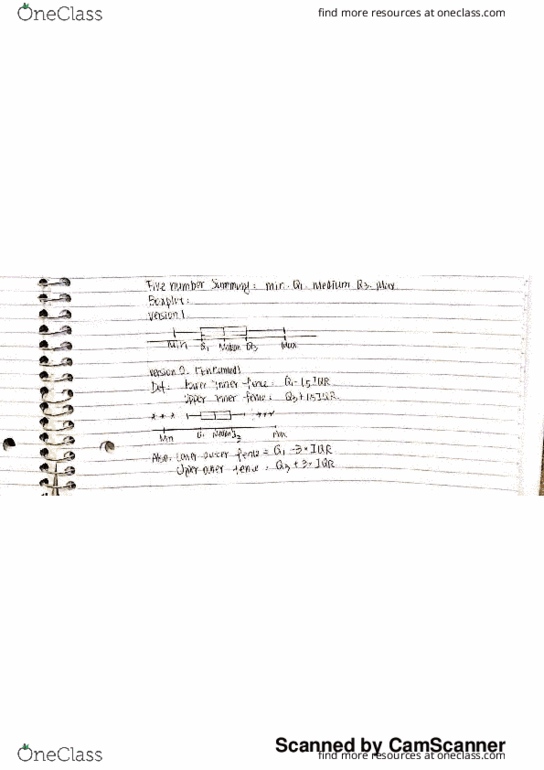 OneClass
find more resources at oneclass.com
Five number Summary: min. Q1. Medium Q3. Max
Boxplot:
Version 1
Min Q1 Median Q3 Max
Version 2. (
Def: Lower inner fence: Q1 - 1.5 IQR
Upper inner fence: Q3 + 1.5 IQR
* * *
Min Q1 Median Q3 Max
Also: Lower outer fence = Q1 - 3 * IQR
Upper outer fence: Q3 + 3 * IQR
Scanned by CamScanner
OneClass
find more resources at oneclass.com